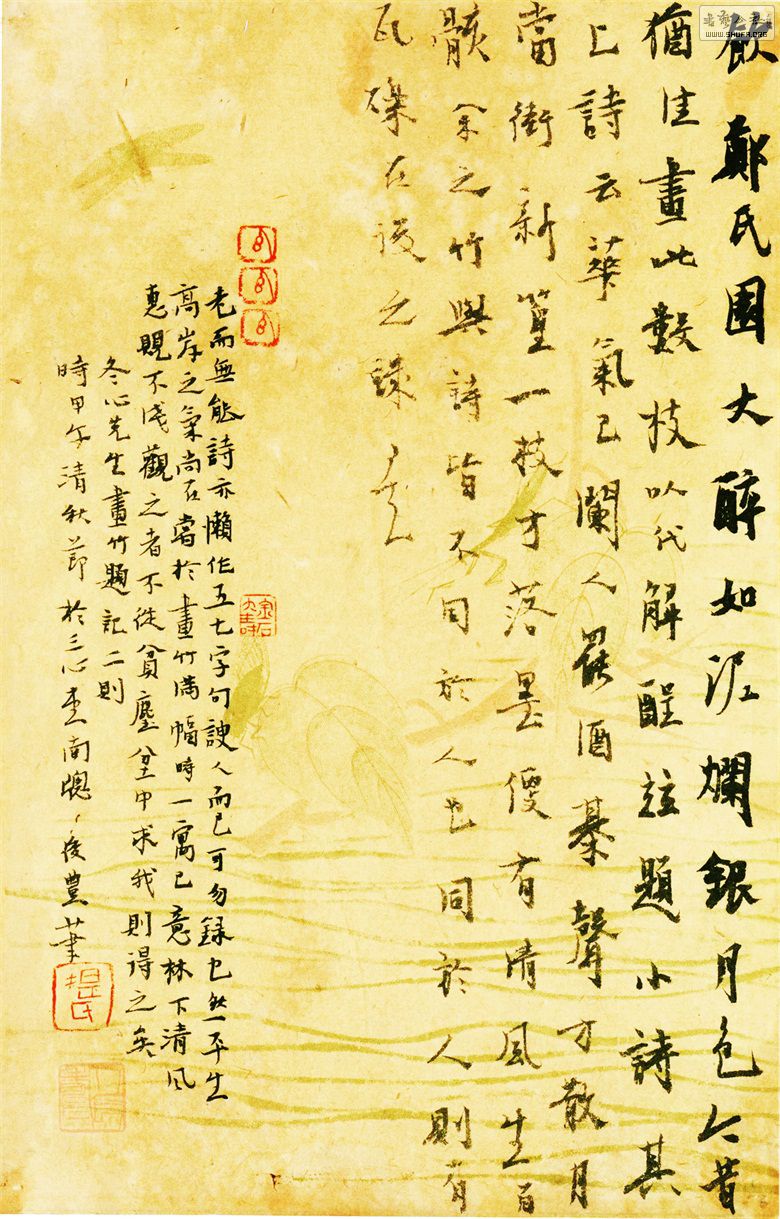 飲鄭氏園大醉如泥爛銀月色今昔
猶佳畫此數枝以代解酲並題小詩其
上詩云華氣已闌人罷酒棊聲方散月
當街新篁一枝才落墨便有清風生百
骸余之竹與詩皆不同於人也同於人則有
瓦礫在後之錄
老而無能詩亦懶作五七字句諛人而已可勿錄也然平生
高岸之氣尚在嘗於畫竹滿幅時一寓己意林下清風
惠貺不淺觀之者不從貧塵坌中求我則得之矣
冬心先生畫竹題記二則
時甲午清秋節於三心南窗後豊筆
WWW.SHUFA.ORG